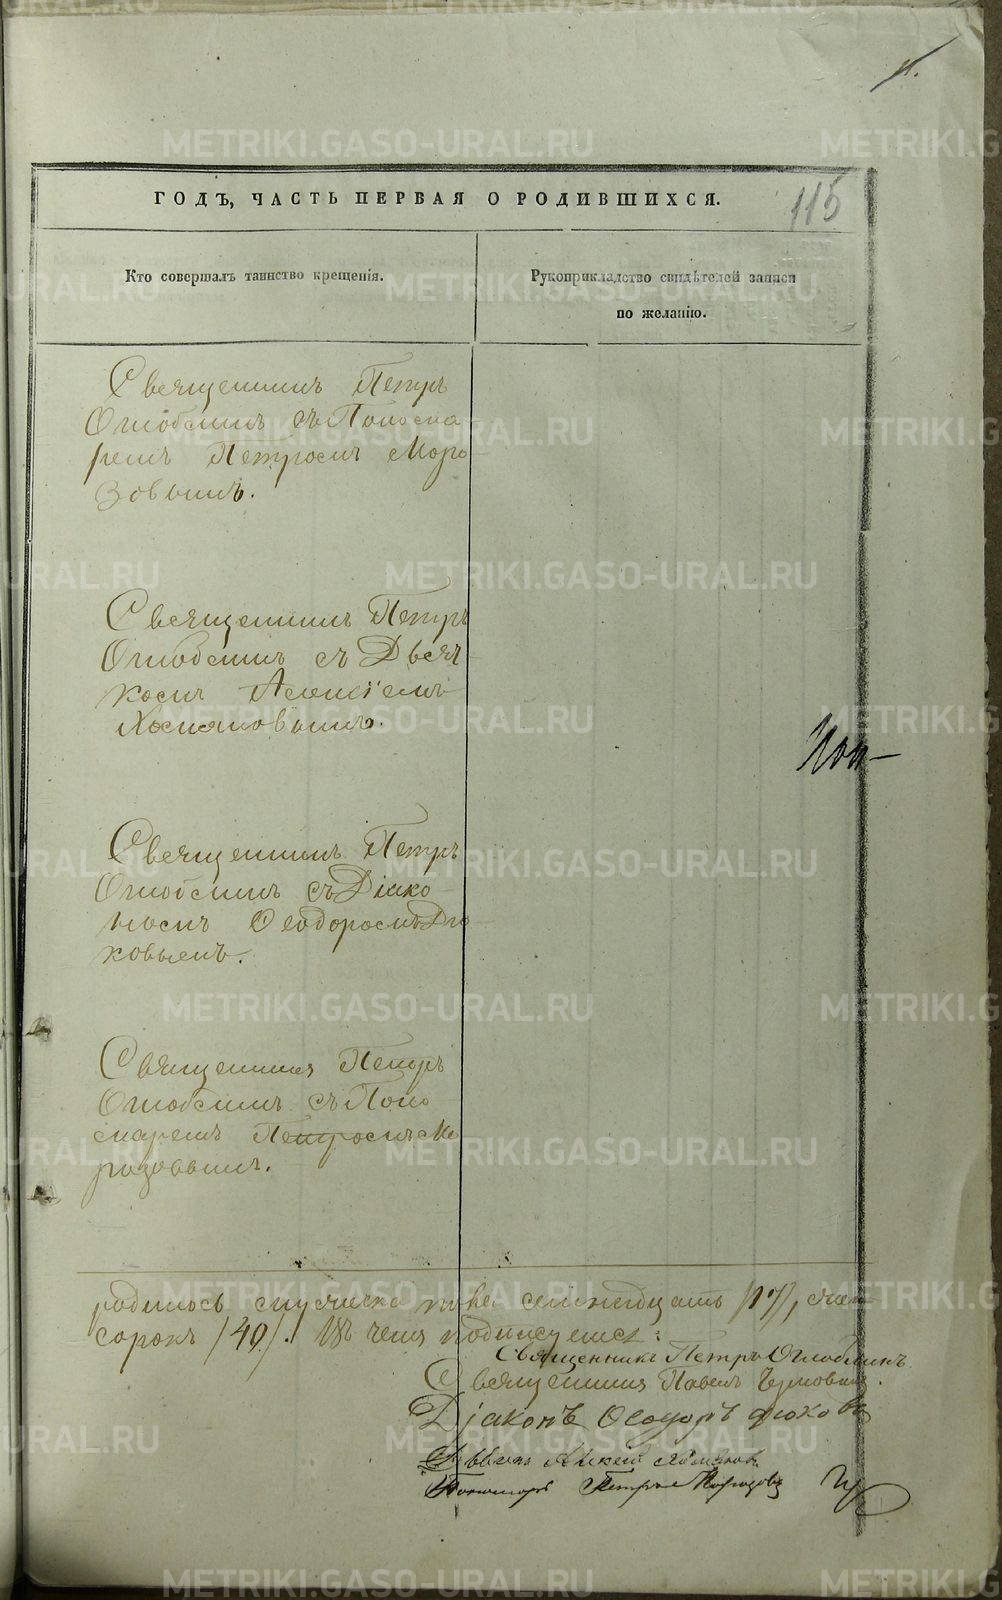 115
ГОДЪ, ЧАСТЬ ПЕРВАЯ О РОДИВШИХСЯ.
Кто совершалъ таинство крещенія.
Рукоприкладство свидѣтелей записи
по желанію.
Священникъ Петръ
Оглоблинъ съ Понома
ремъ Петромъ Моро
зовымъ.
Священникъ Петръ
Оглоблинъ съ Дьяч
комъ Алексіемъ
Священникъ Петръ
Оглоблинъ съ Діако
номъ Ѳеодоромъ Дю
ковымъ.
Священникъ Петръ
Оглоблинъ съ Поно
маремъ Петромъ Мо
розовымъ.
родилось мужеска пола семнадцать /17/,
сорокъ /40/. Въ чемъ подписуемся:
Священникъ Петръ Оглоблинъ
Священникъ Павелъ
Діаконъ Ѳеодоръ Дюковъ
Алексей
Пономарь Петръ Морозовъ
METRIKI.GASO-URAL.RU